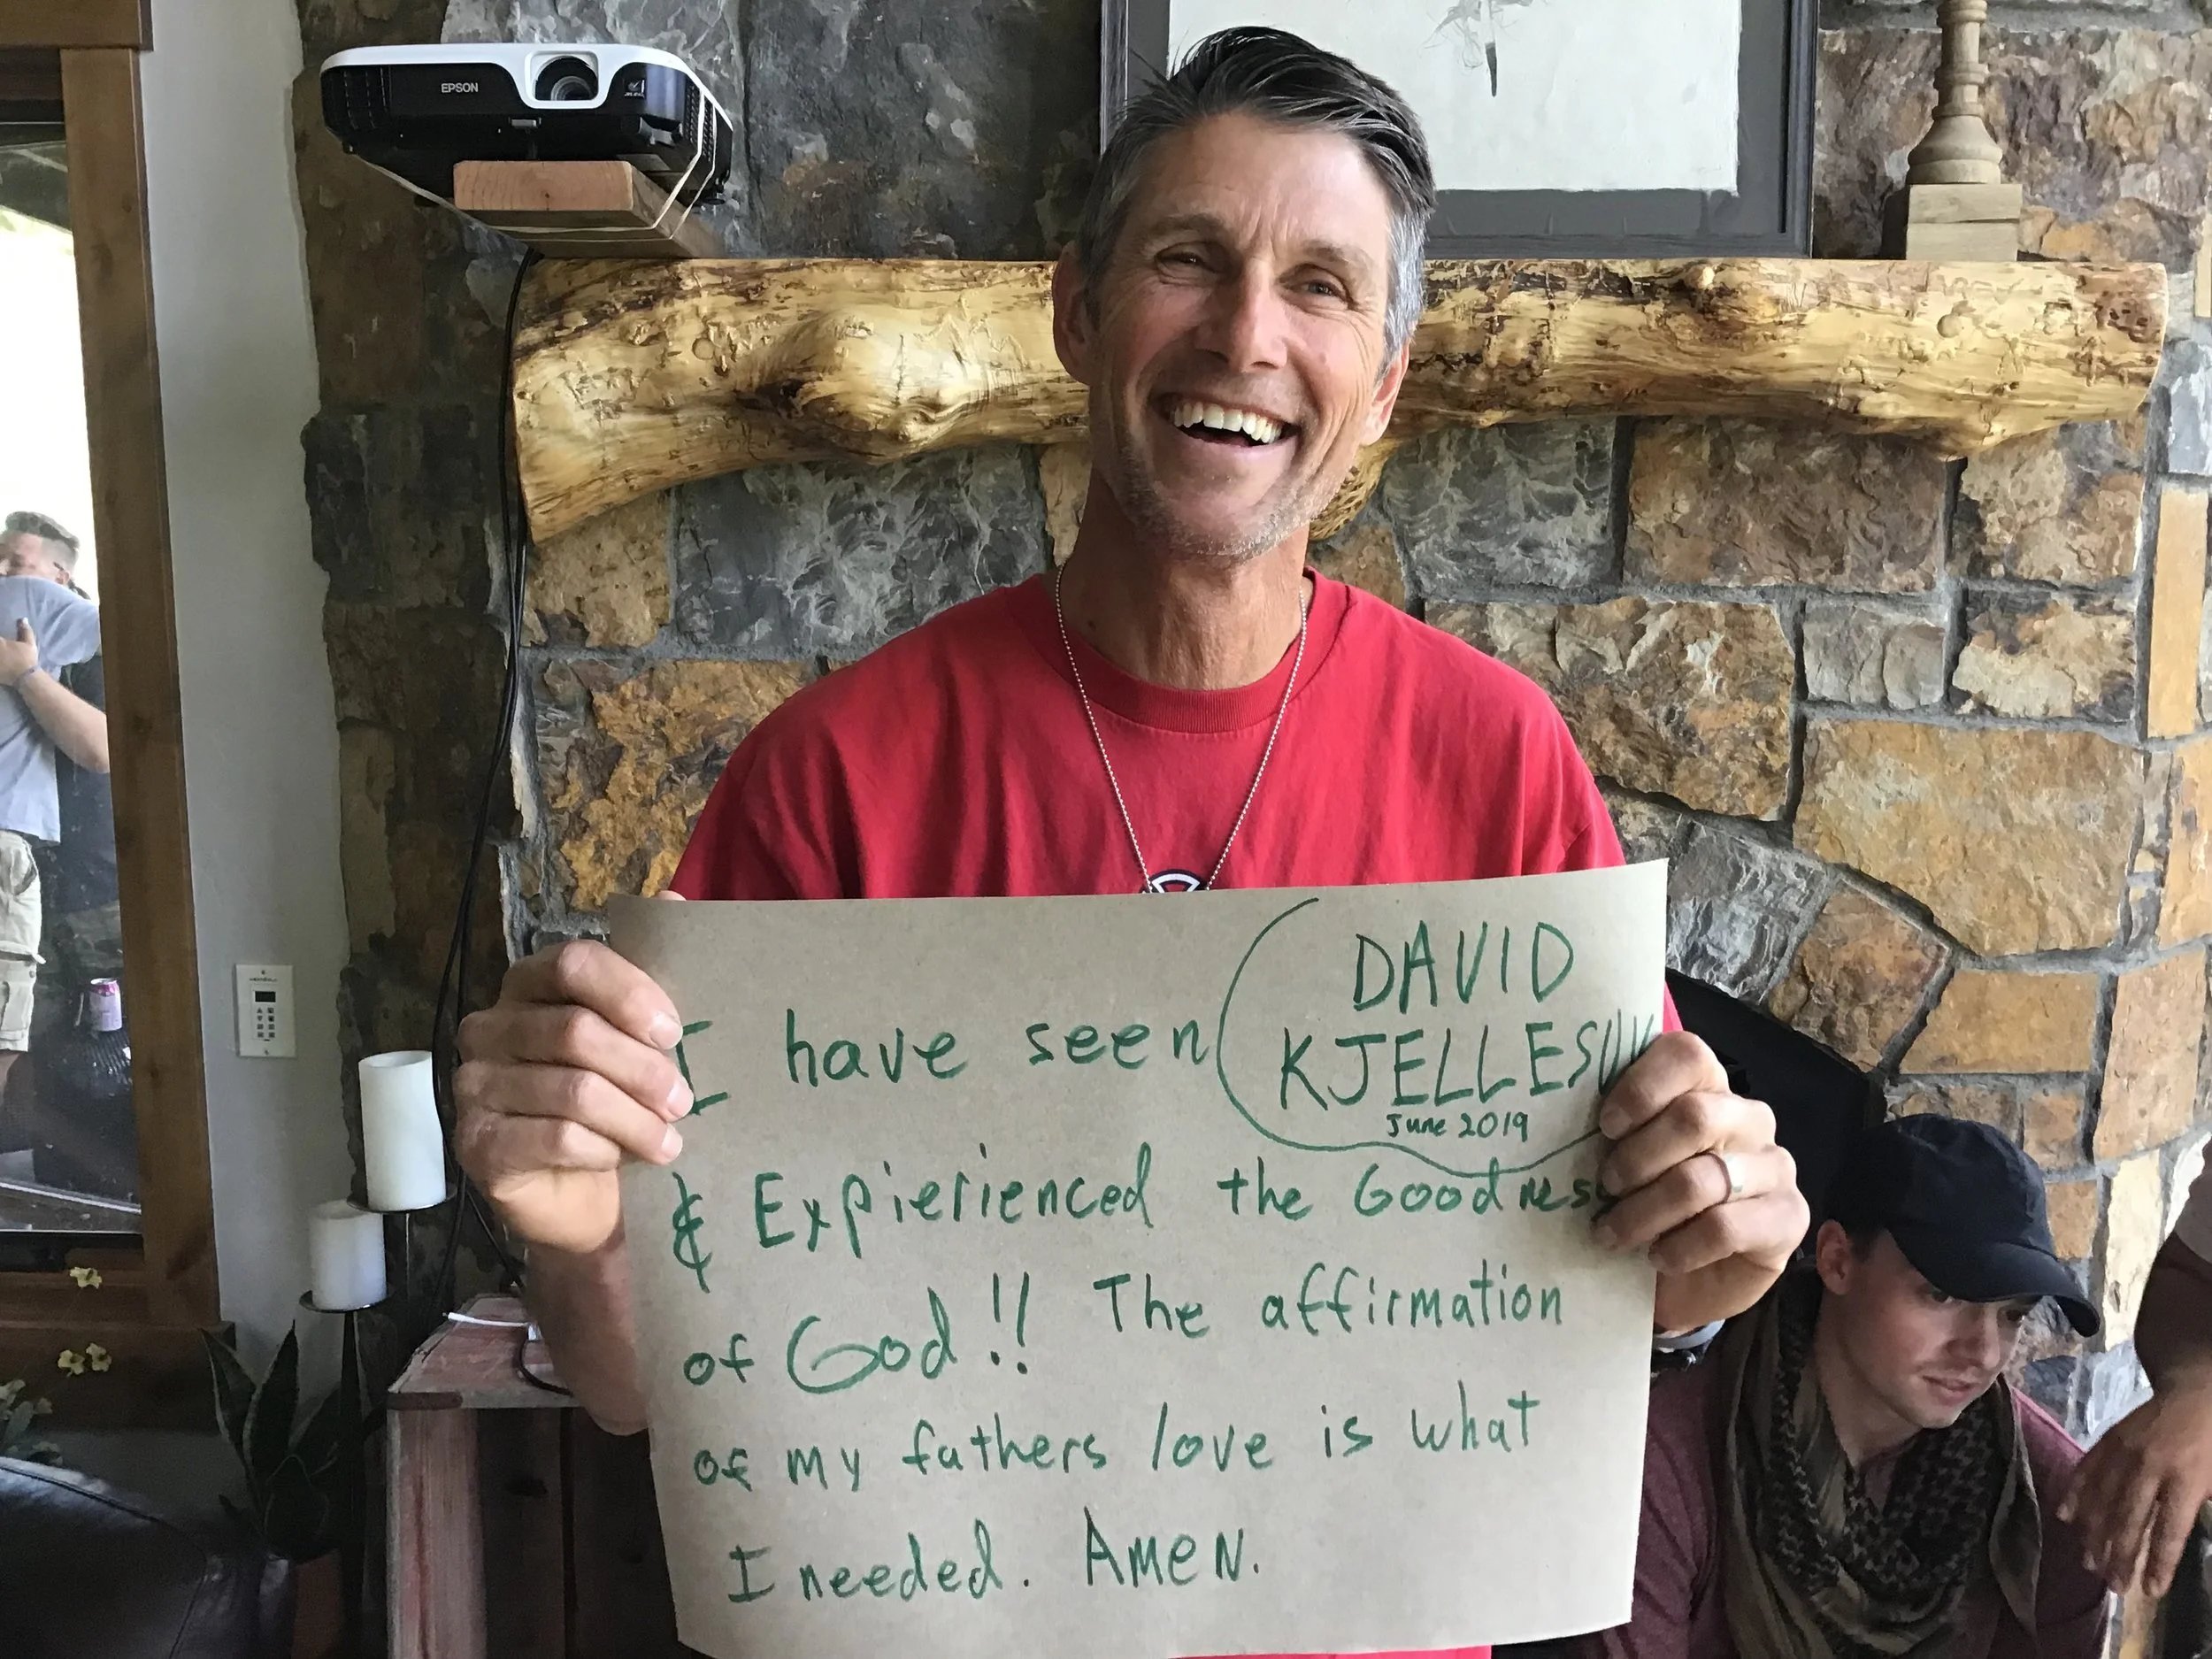 EPSON
DAVID
I have seen
June 2019
& Expierienced the Goodness
of God!! The affirmation
of my fathers love is what
I needed. Amen.